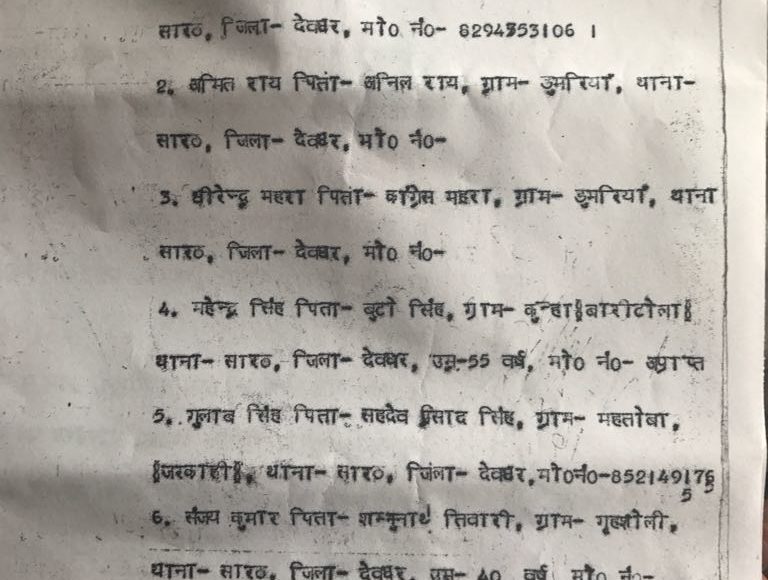 सारठ, जिला- देवघर, मो0 नं0- 8294353106 ।
2. अमित राय पिता- अनिल राय, ग्राम- डुमरियाँ, थाना-
सारठ, जिला- देवघर, मो0 नं0-
3. धीरेन्द्र महरा पिता- कांग्रेस महरा, ग्राम- डुमरियाँ, थाना
सारठ, जिला- देवघर, मो0 नं0-
4. महेन्द्र सिंह पिता- बुटो सिंह, ग्राम- कुन्हा§बारीटोला§
थाना- सारठ, जिला- देवघर, उम्र-55 वर्ष, मो0 नं0- अप्राप्त
5. गुलाब सिंह पिता- सहदेव प्रसाद सिंह, ग्राम- महतोबा,
§जरकाही§, थाना- सारठ, जिला- देवघर, मो0नं0-852149176
6. संजय कुमार पिता- शम्भुनाथ तिवारी, ग्राम-
थाना- सारठ, जिला- देवघर, उम्र- 40 वर्ष, मो0 नं0-